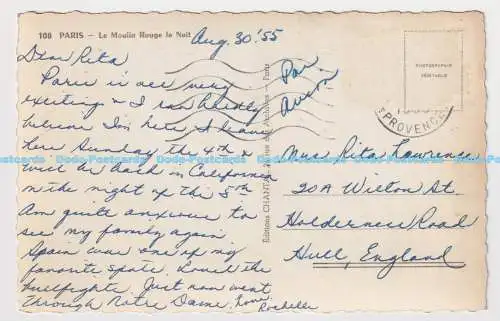 108 PARIS – Le Moulin Rouge la Nuit
Aug. 30 '55
Dear Rita
Paris is all very
exciting & I can hardly
believe I'm here. I leave
here Sunday the 4th &
will be back in California
on the night of the 5th
Am quite anxious to
see my family again
Spain was one of my
favorite spots. Loved the
bullfights. Just now went
through Notre Dame. Love
Rochelle
Par
Avion
PHOTOGRAPHIE
VÉRITABLE
PROVENCE
Editions CHANT
Paris
Miss Rita Lawrence
20A Wilton St.
Holderness Road
Hull, England
Do-Postcards